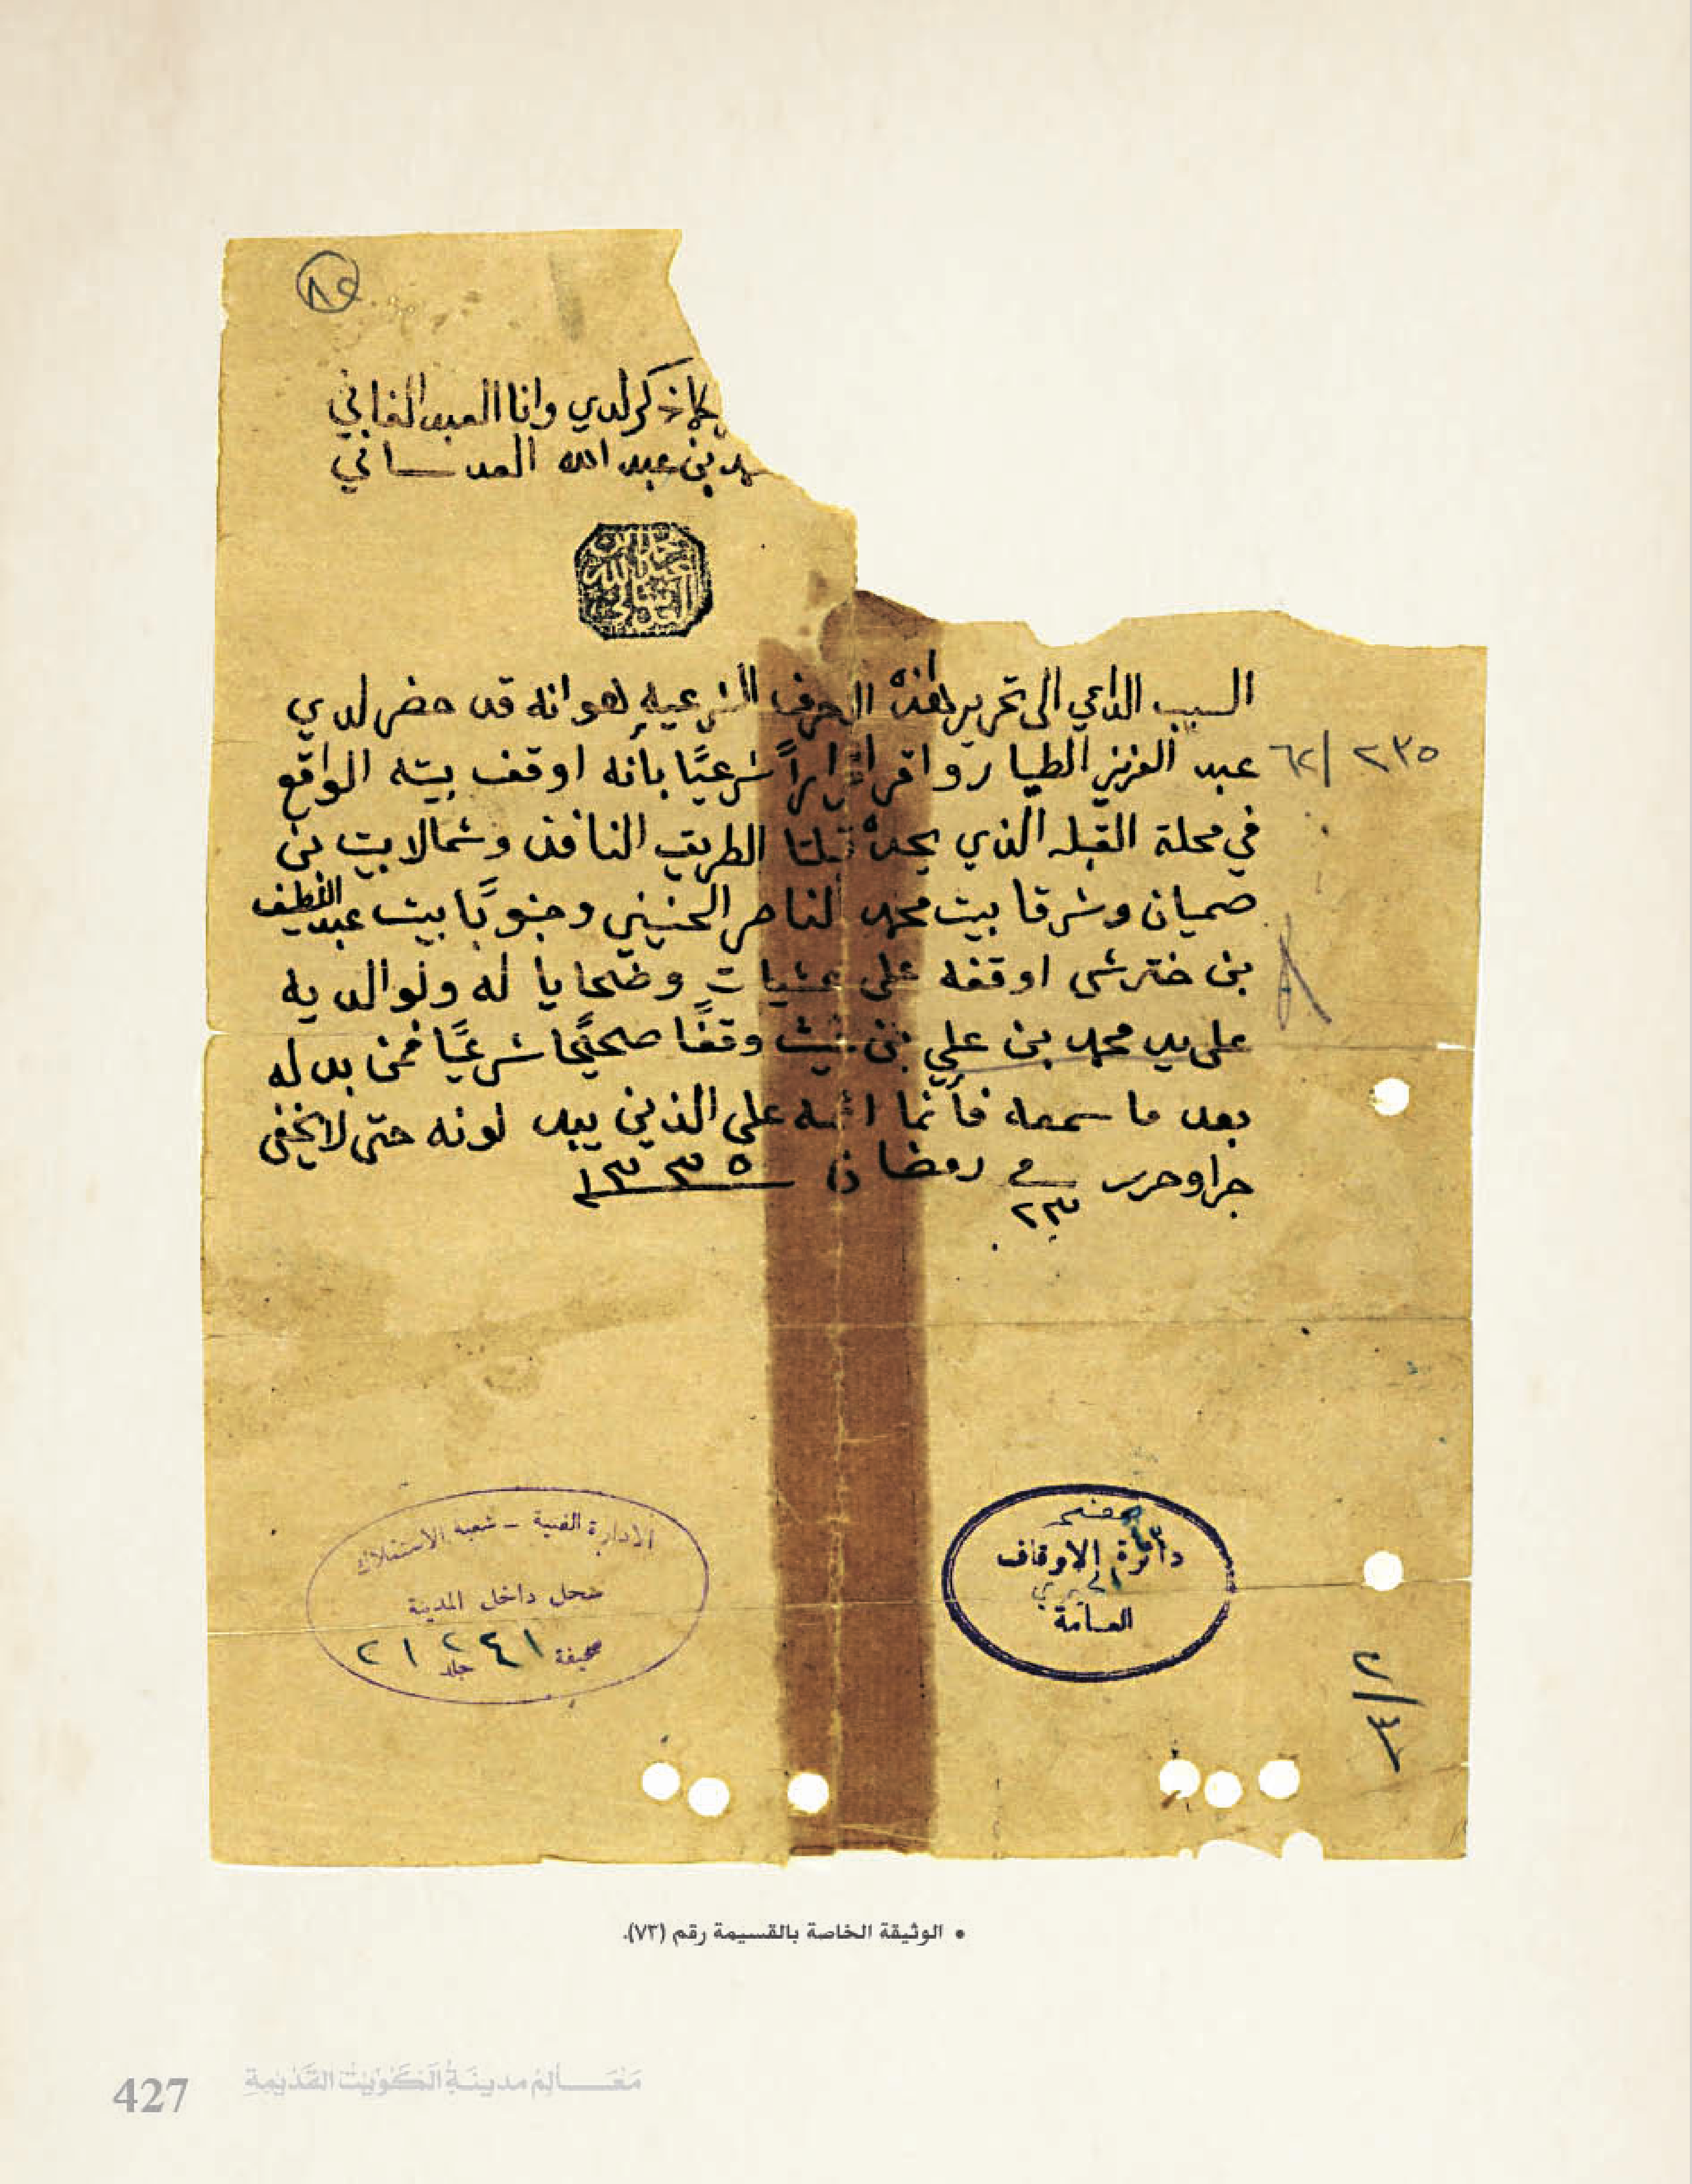 ٨٢
كما ذكر لدي وانا العبد الفاني
بن عبد الله العدساني
السبب الداعي الى تحرير هذه الاحرف الشرعيه هو انه قد حضر لدي
عبد العزيز الطيار واقر اقراراً شرعيًا بانه اوقف بيته الواقع
٢٣٥/٦٢
في محلة القبله الذي يحده قبلتا الطريق النافذ وشمالا بيت بن
صميان وشرقا بيت محمد الناصر الحنيني وجنوبًا بيت عبد اللطيف
بن خترشى اوقفه على عشيات وضحايا له ولوالديه
على يد محمد بن علي بن وقفًا صحيحًا شرعيًا فمن بدله
بعد ما سمعه فأنما اثمه على الذين يبدلونه حتى لا يخفى
جرا وحرر في ٢٣ رمضان ١٣٣٥
الادارة الفنية - شعبة الاستملاك
سجل داخل المدينة
صحيفة ٢٤١ جلد ٢١
دائرة الاوقاف
العامة
٢/٤
• الوثيقة الخاصة بالقسيمة رقم (٧٣).
427 مَعَالِمُ مدينَةِ الكُوَيْت القَدْيمةِ